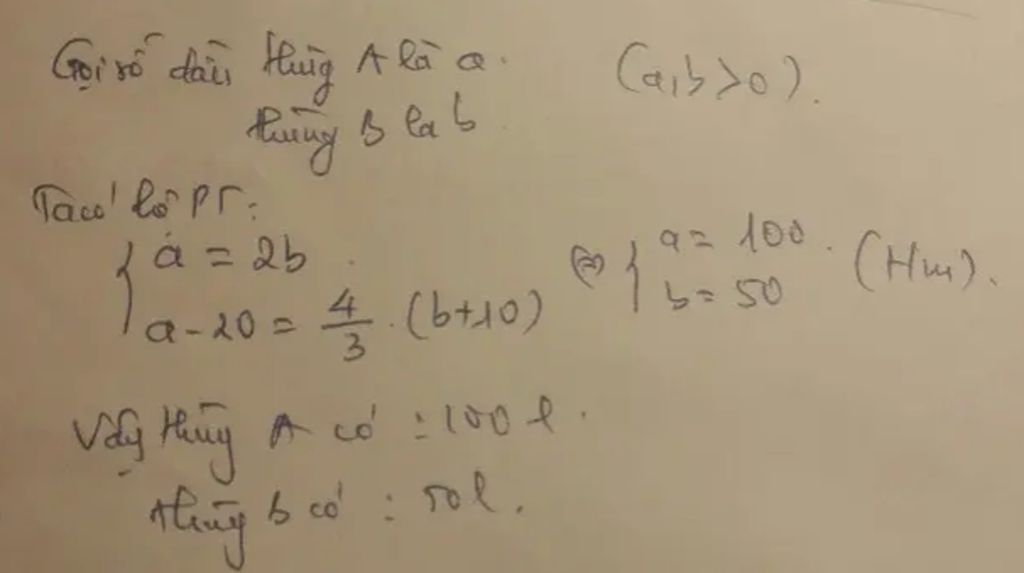 Gọi số dầu thùng A là a. (a,b>0).
thùng B la b
Ta có hệ PT:
{ a = 2b
a - 20 = 4/3 . (b+10) (=) { a = 100. b = 50 (tm).
Vậy thùng A có : 100 l.
thùng B có : 50l.